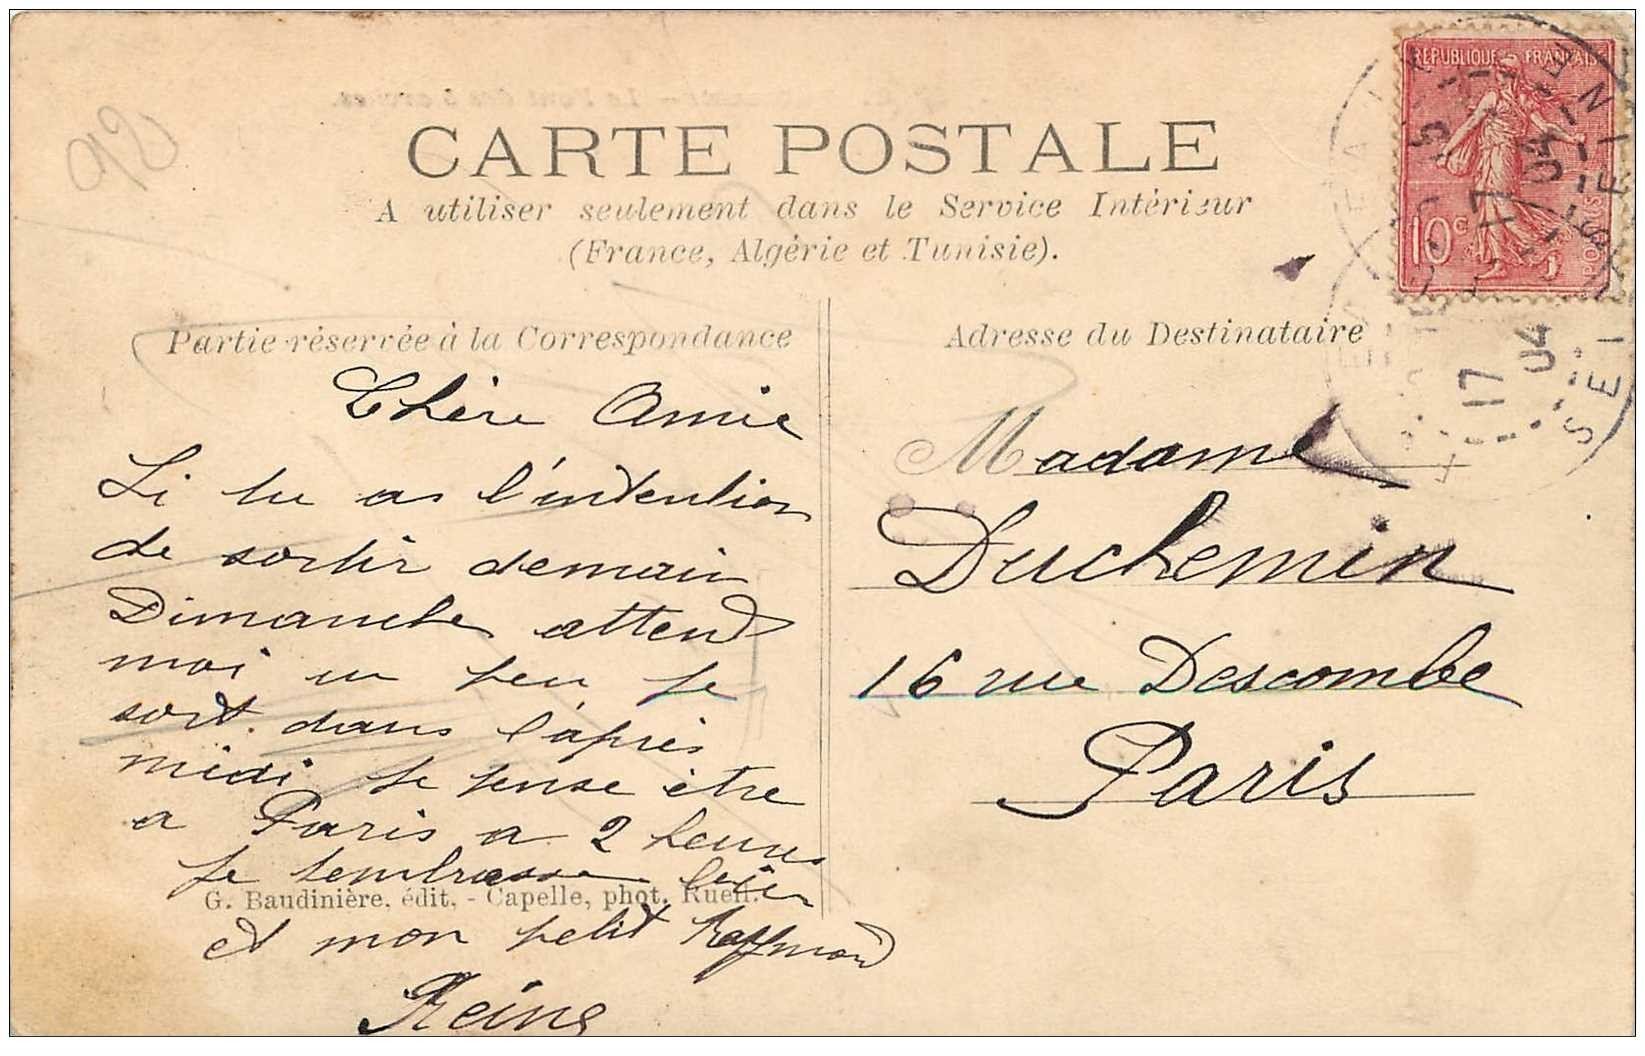 CARTE POSTALE
A utiliser seulement dans le Service Intérieur
(France, Algérie et Tunisie).
REPUBLIQUE FRANÇAISE
10c
POSTES
17
04
SEINE
17
04
SEI
Partie réservée à la Correspondance
Adresse du Destinataire
Chère Amie
Si tu as l'intention
de sortir demain
Dimanche attend
moi un peu je
sort dans l'après
midi je pense être
a Paris a 2 heures
je tembrasse bien
et mon petit Raymond
Reine
G. Baudinière, édit, - Capelle, phot. Rueil.
Madame
Duchemin
16 rue Descombe
Paris